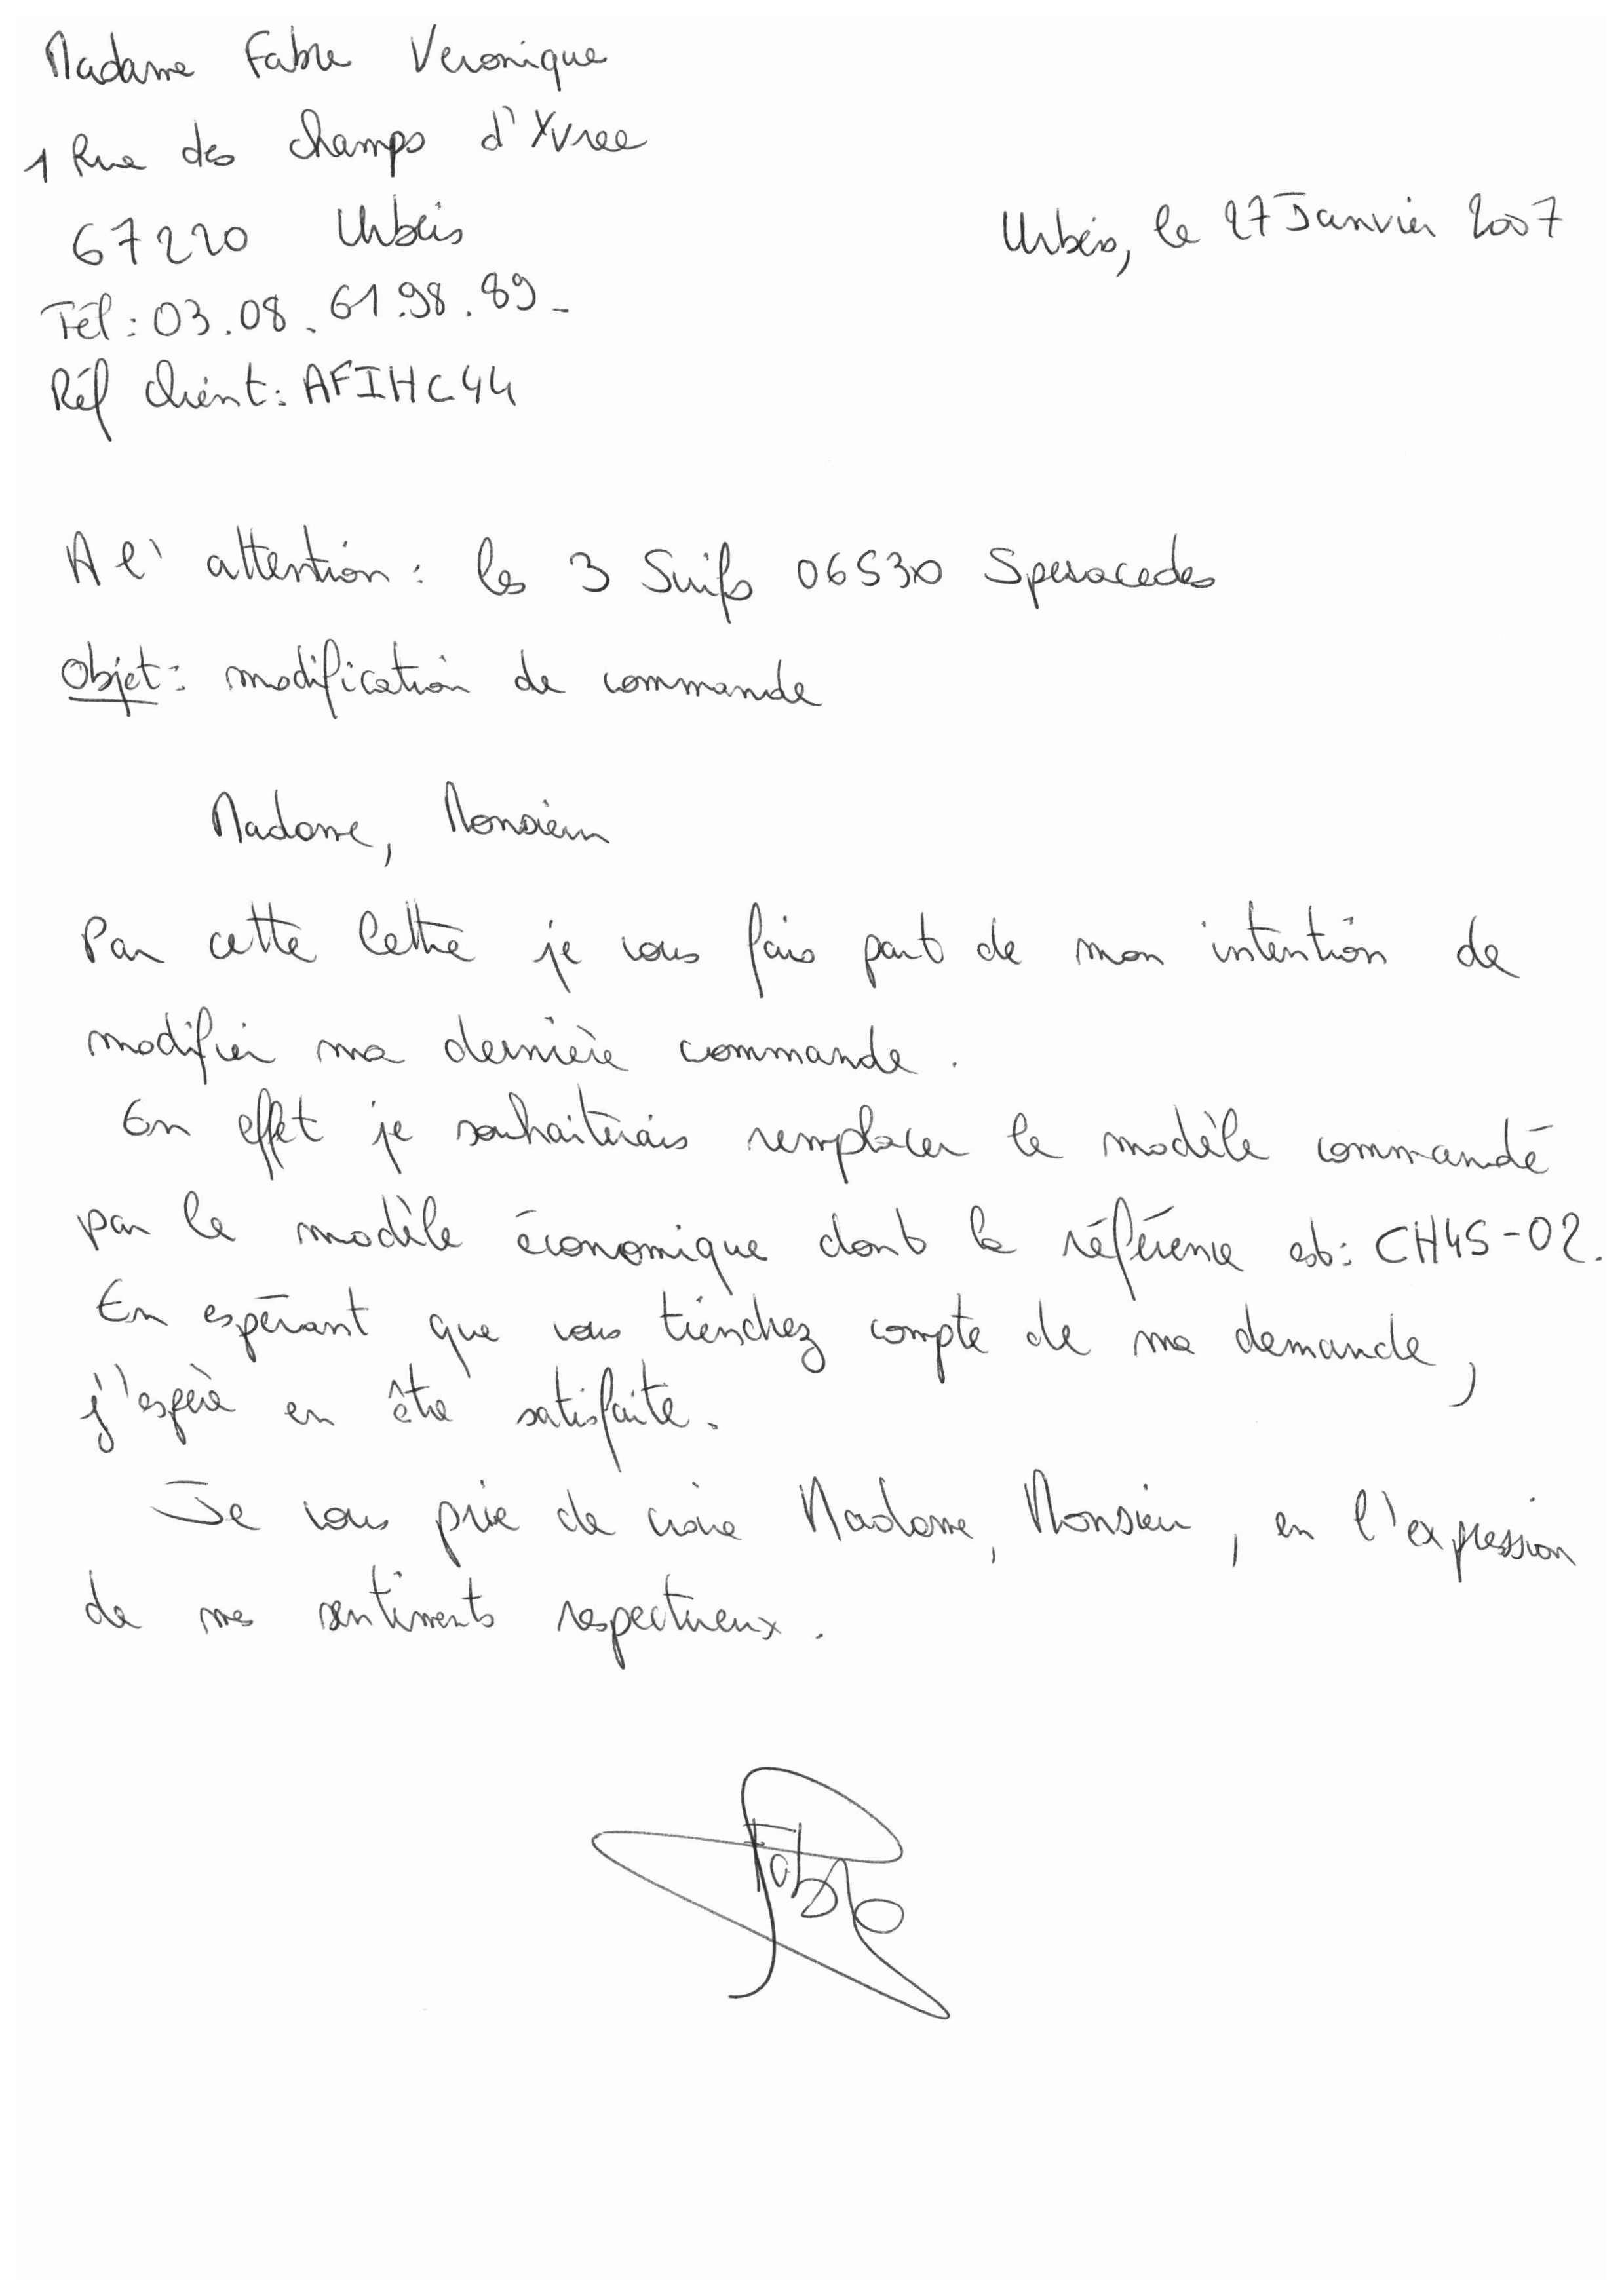 Madame Fabre Veronique
1 Rue des champs d'Yvree
67220 Urbeis
Urbeis, le 27 Janvier 2007
Tél : 03.08.61.98.89.
Réf client : AFIHC44
A l'attention : les 3 Suifs 06530 Speracedes
Objet : modification de commande
Madame, Monsieur
Par cette lettre je vous fais part de mon intention de
modifier ma dernière commande.
En effet je souhaiterais remplacer le modèle commandé
par le modèle économique dont la référence est : CH45-02.
En espérant que vous tiendrez compte de ma demande,
j'espère en être satisfaite.
Je vous prie de croire Madame, Monsieur, en l'expression
de mes sentiments respectueux.
Fabre